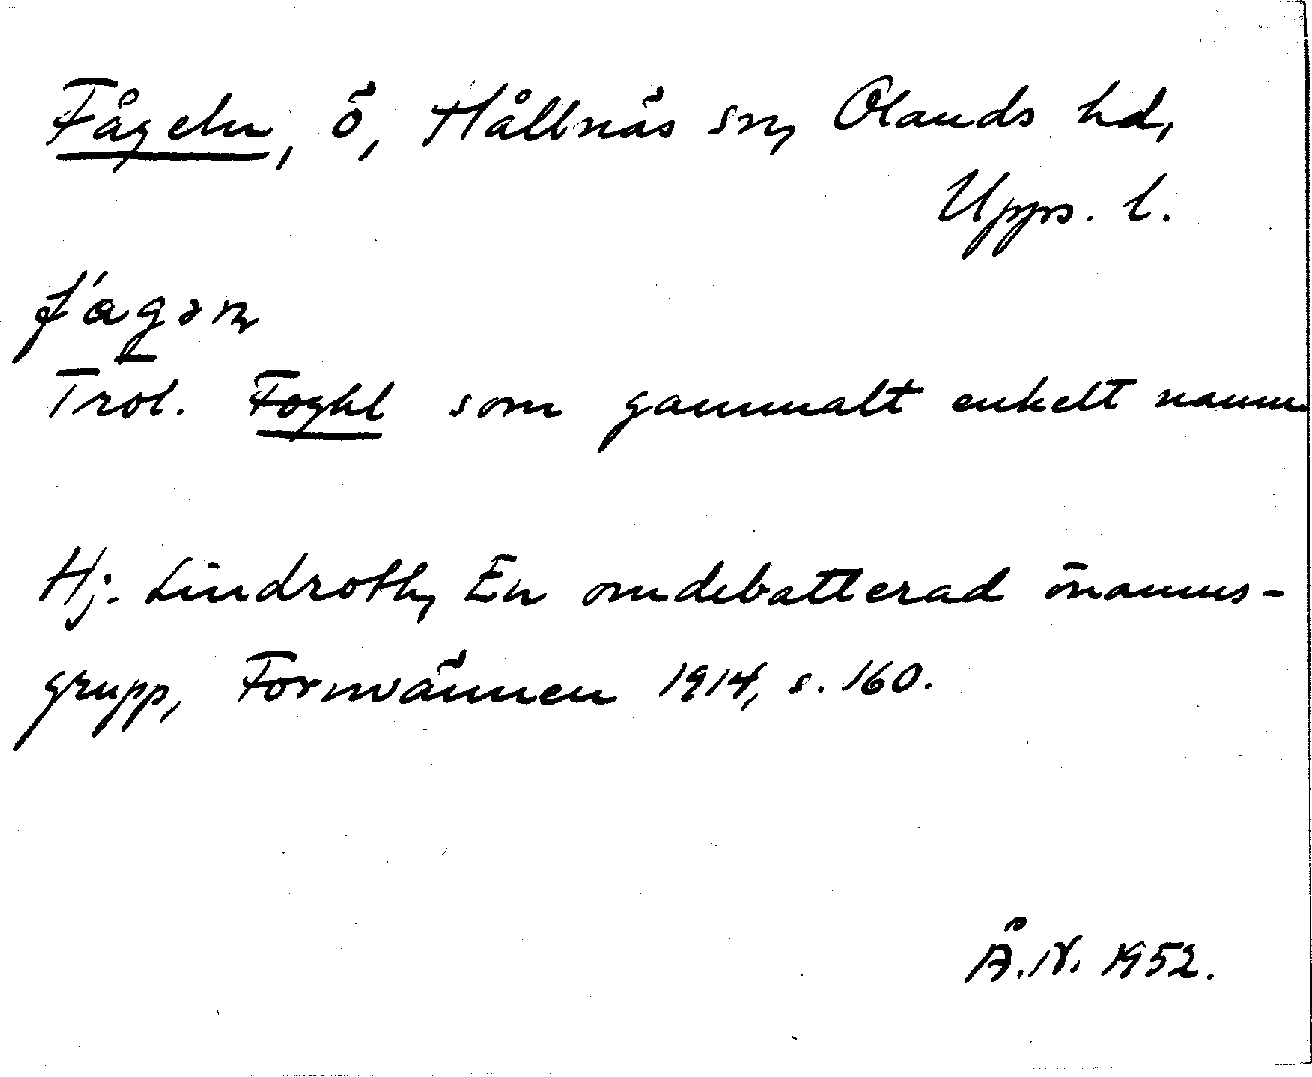 Fågeln, ö, Hållnäs sn, Olands hd,
Upps. l.
fágən
Trol. Foghl som gammalt enkelt namn
Hj. Lindroth, En omdebatterad önamns-
grupp, Fornvännen 1914, s. 160.
Å.N. 1952.